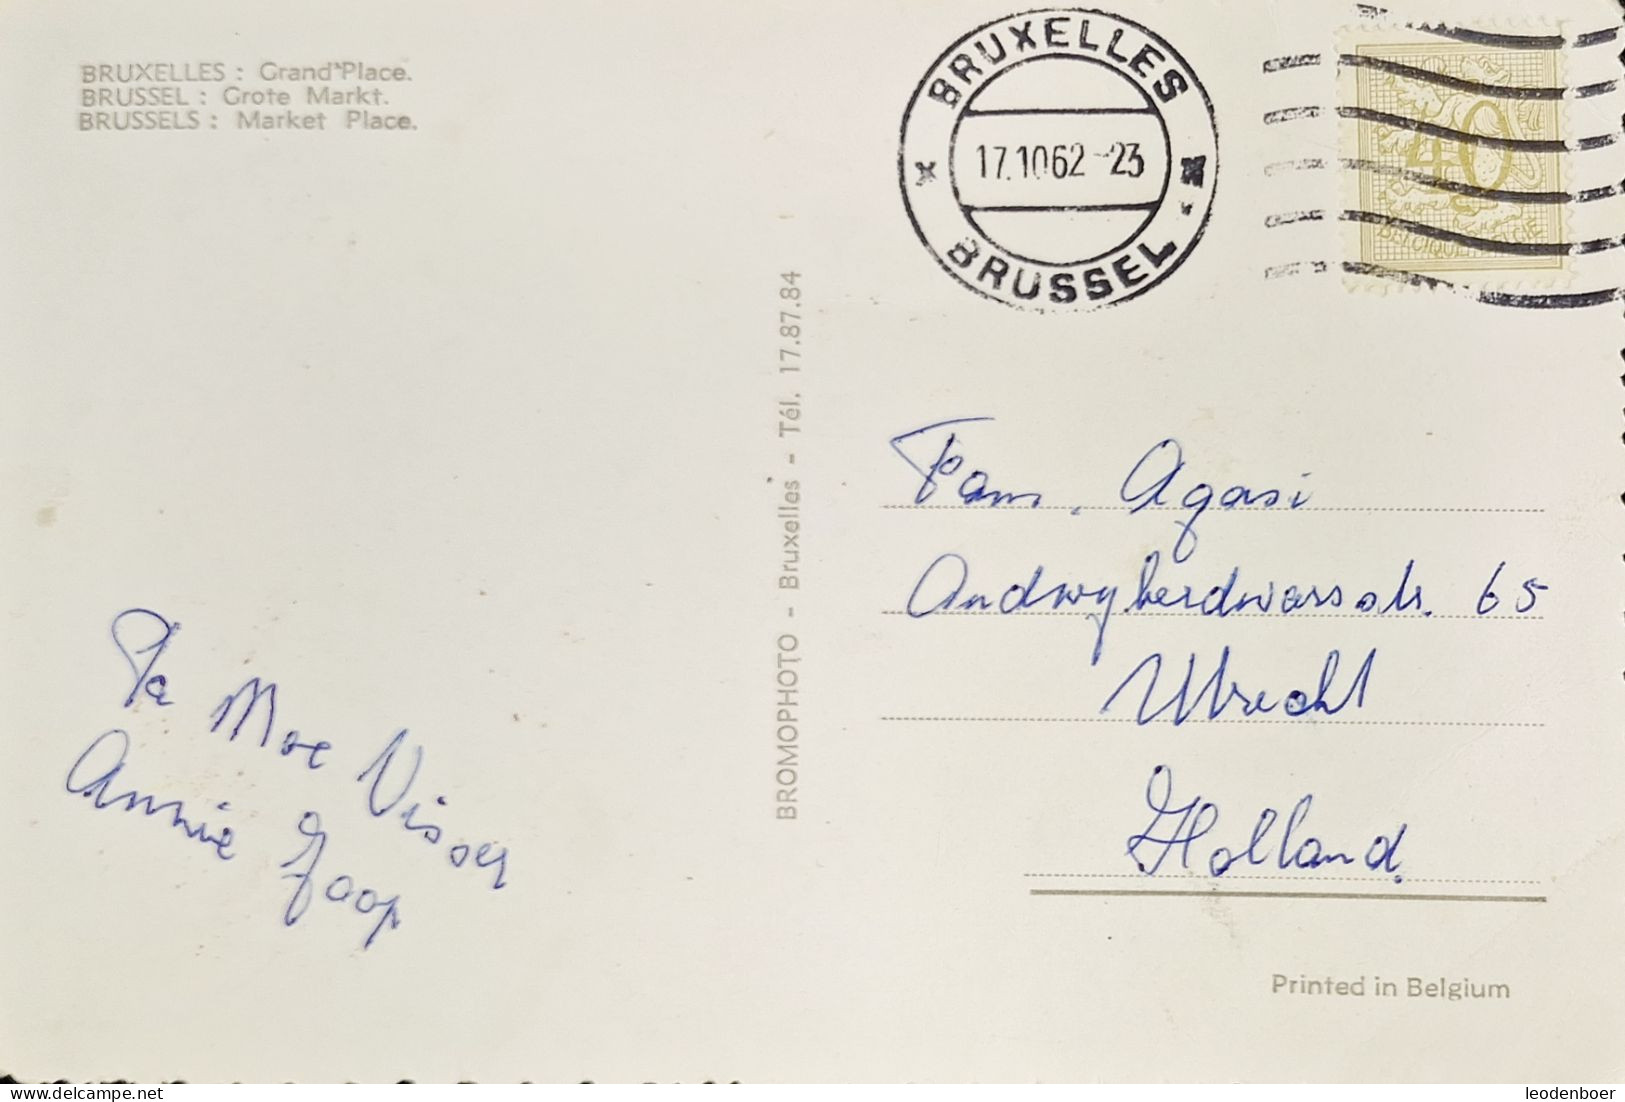 BRUXELLES : Grand'Place.
BRUSSEL : Grote Markt.
BRUSSELS : Market Place.
BRUXELLES
17.1062-23
BRUSSEL
40
BELGIQUE BELGIE
BROMOPHOTO - Bruxelles - Tél. 17.87.84
Pa Moe Visser
Annie Joop
Fam. Agasi
Andwyherdwarsstr. 65
Utrecht
Holland.
Printed in Belgium
leodenboer